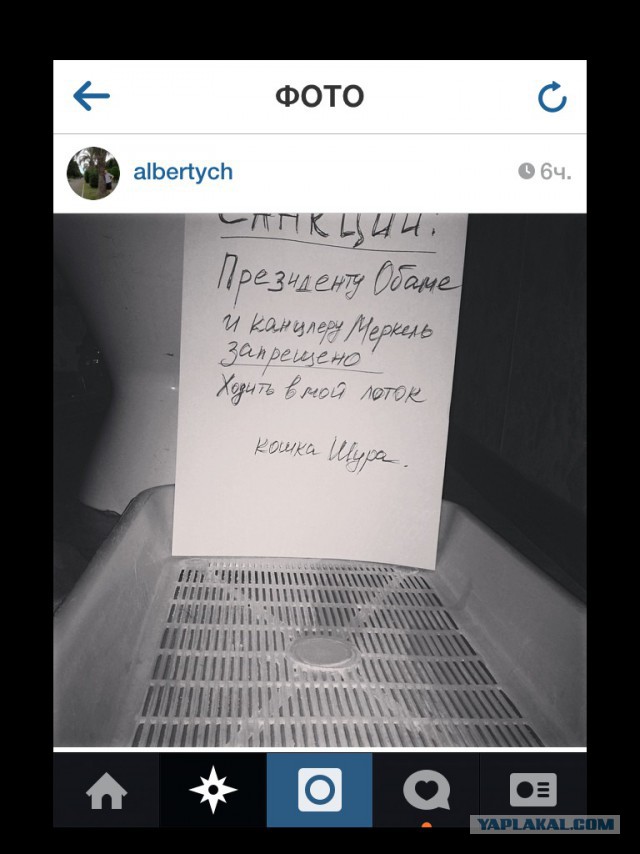 ФОТО
albertych
6ч.
САНКЦИИ!
Президенту Обаме
и канцлеру Меркель
запрещено
Ходить в мой лоток
кошка Шура.
YAPLAKAL.COM